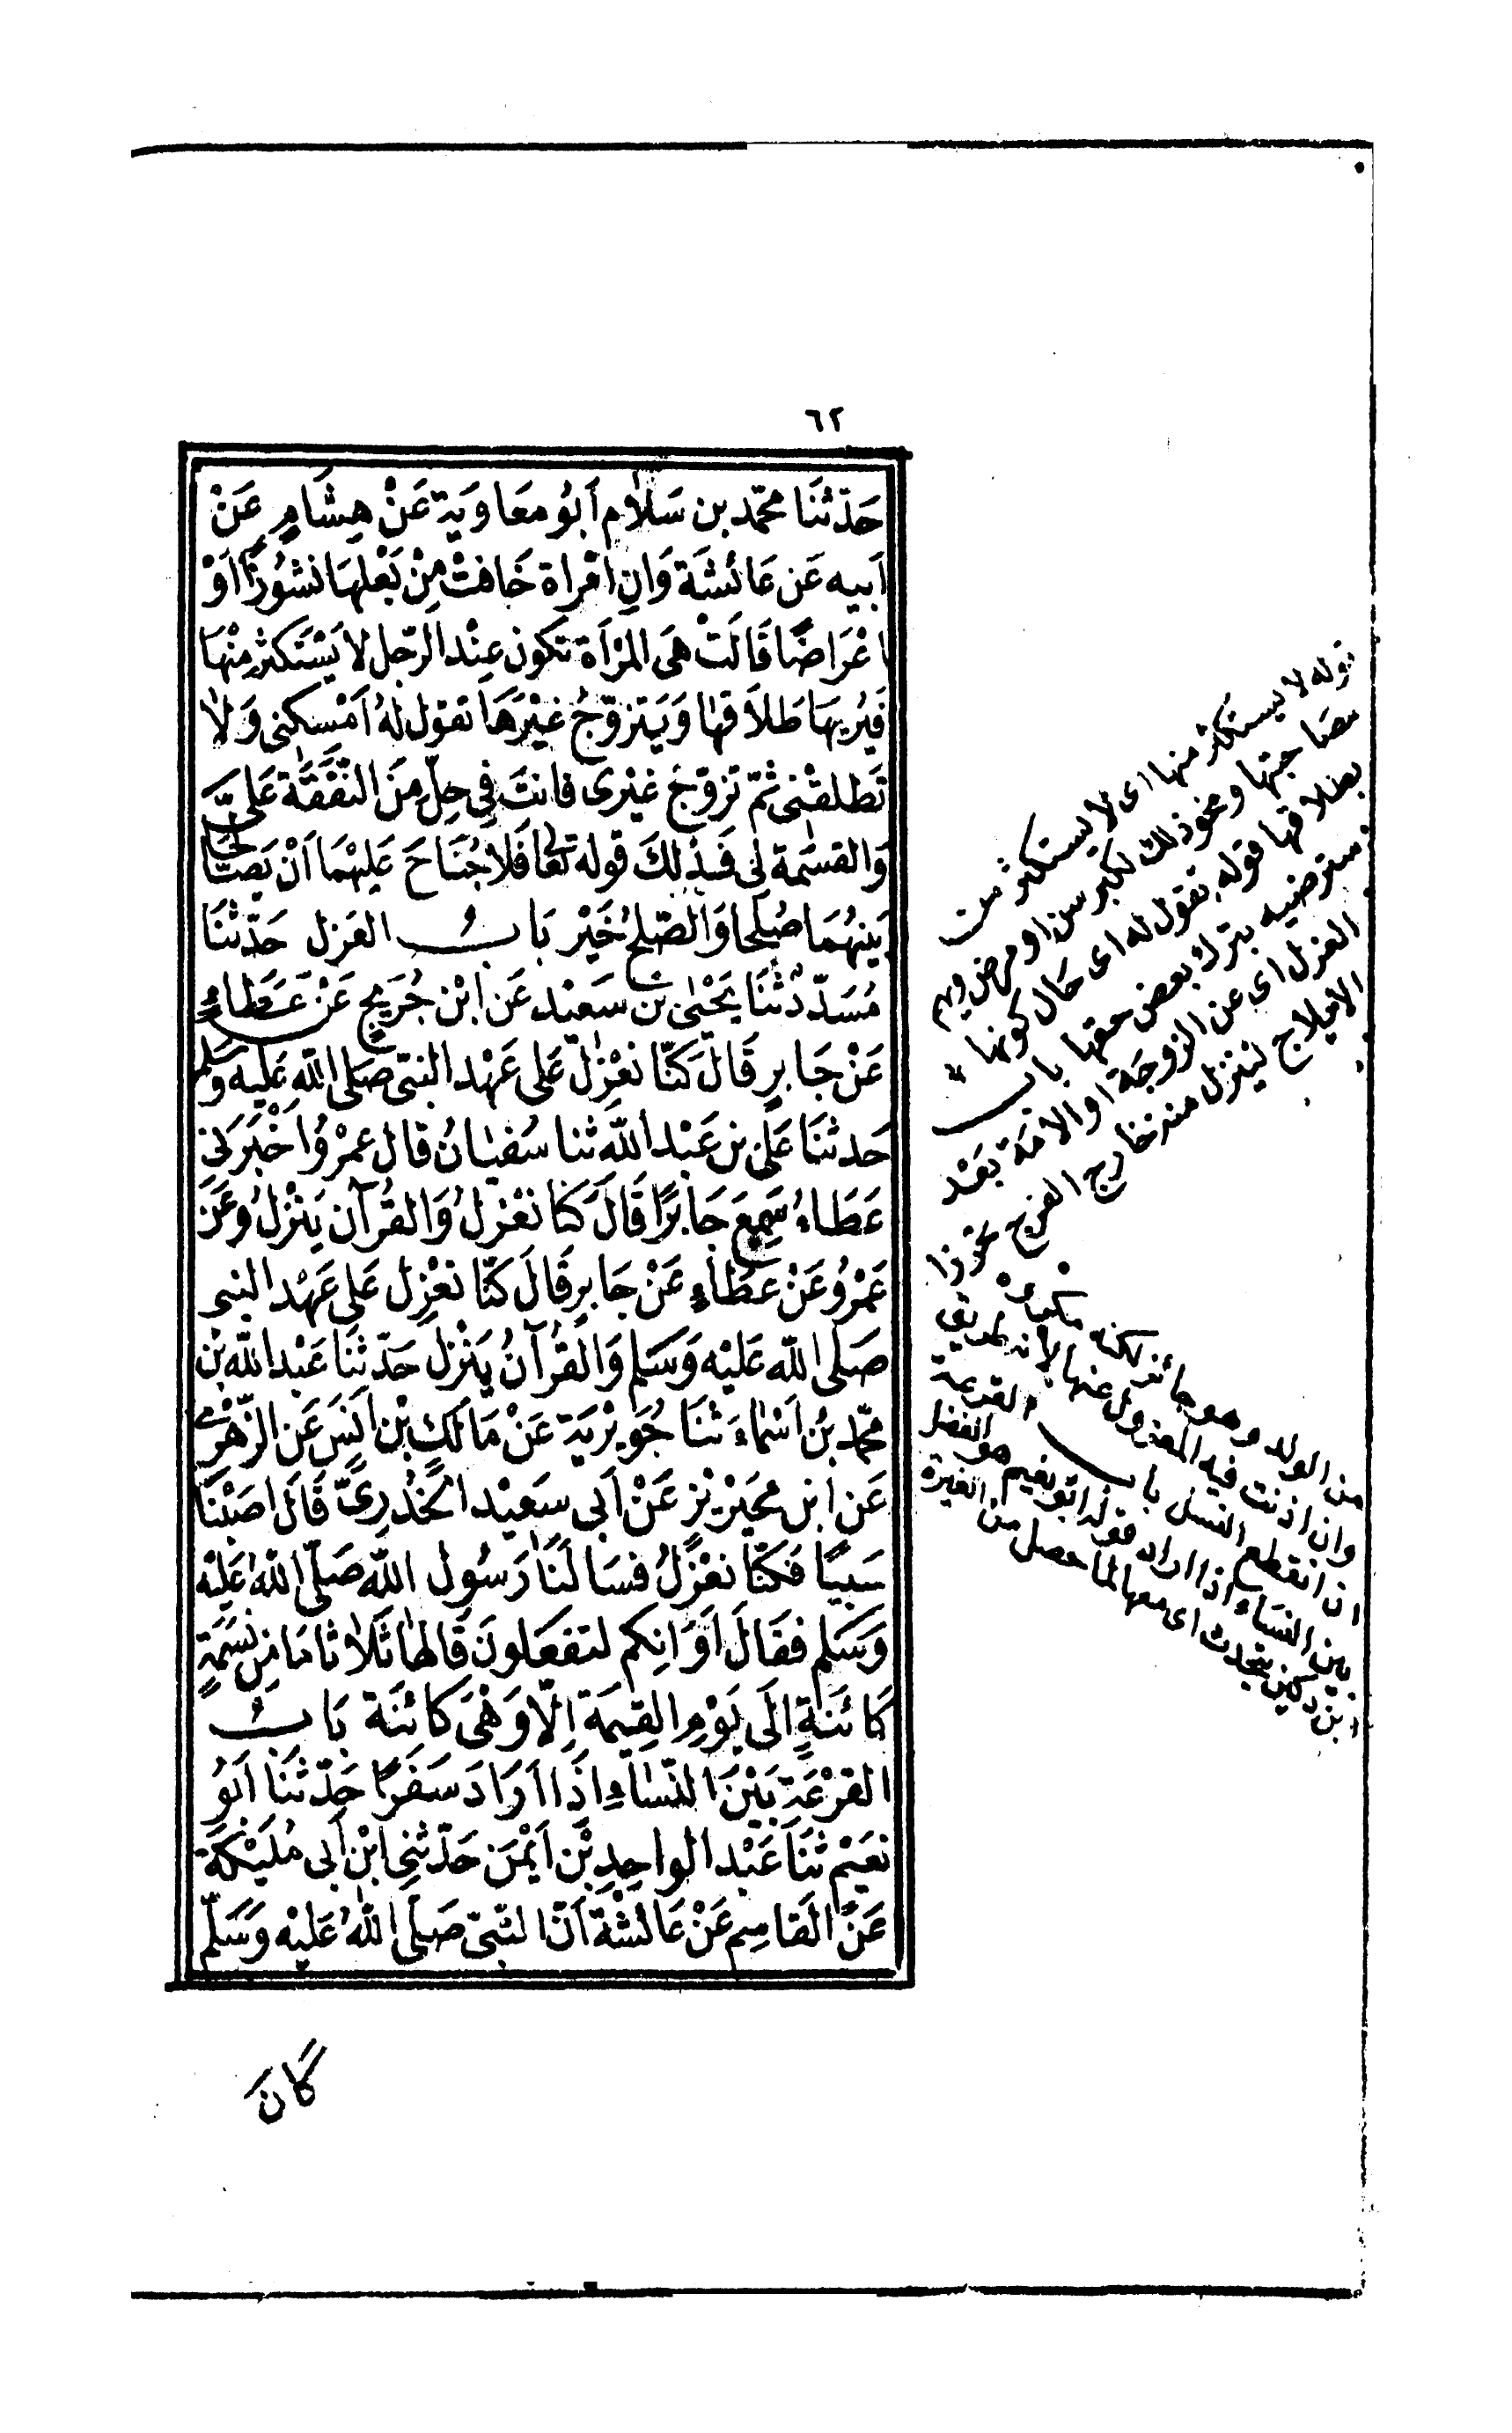 ٦٢
حَدّثنَا محمّد بن سَلاٰم اَبوُ معَاويَة عَنْ هِشَامٍ عَنْ
اَبيه عَن عَائشَة وَانِ امْراة خَافتْ مِنْ بَعْلهَا نشوُزًا اَوْ
اعْرَاضًا قَالَتْ هىَ المرْاَة تكون عِنْد الرّجل لا يَسْتَكثر مِنْهَا
فَيُريهَا طَلاَقهٰا وَيَتزوّجُ غيْرَهَا تقول لهُ اَمْسكنى وَلاٰ
تَطلقْنى ثمّ تزوّجْ غيْرى فانتَ فِي حِلّ مِنَ النّفَقَة عَلىَّ
وَالقسْمة لى فَذٰلكَ قوله تعٰا فَلاٰ جُنَاحَ عَليْهمَا اَنْ يَصّالحَا
بَينهُمَا صُلحًا وَالصّلحُ خَيْر بَابُ العَزل حَدّثنَا
مُسَدّد ثنَا يَحْيىٰ بن سَعيْد عَن ابْن جُرَيجٍ عَنْ عَطَاءٍ
عَنْ جَابرٍ قَالَ كنّا نعْزِلُ عَلى عَهْد النبّى صَلى اللّهِ عَليه وسَلم
حَدثنَا عَلى بن عَبْد اللّه ثنا سُفيٰانُ قال عمْرُو اَخْبَرَنى
عَطَاءُ سَمِعَ جَابرًا قَالَ كنَا نعْزلُ وَالقُرآن يَنْزلُ وعَن
عَمْرُو عَنْ عطَاءٍ عَنْ جَابرٍ قَالَ كنّا نعْزِل عَلى عَهْد النبى
صَلى اللّه عَليْه وَسَلم وَالقُرآنُ يَنْزلُ حَدّثنَا عَبْد اللّه بن
محمّد بنُ اَسْمٰاءَ ثنَا جُوَيْريَة عَنْ مَالكِ بْن اَنَسَ عَن الزّهْرى
عَنِ ابن محَيْريْز عَنْ اَبى سَعيْد الخُدْرىّ قَالَ اصَبْنَا
سَبيًا فكنّا نعْزلُ فسَالنَا رَسُول اللّه صَلّى اللّهُ عَليْه
وَسَلم فقَالَ اَوَانِكم لتفعَلونَ قَالهٰا ثَلاٰثا مَا مِن نسَمَةٍ
كَائنَةٍ الَى يَوْمِ القِيمَة اِلّا وَهْىَ كائنَة بَابُ
القرْعَة بَيْنَ النّسٰاءِ اذَا اَرَادَ سَفَرًا حَدّثنَا اَبوُ
نعَيْم ثنَا عَبْد الواحِدِ بْن اَيْمَن حَدّثنِى ابْن اَبى مُلَيْكَة
عَنْ القَاسِم عَنْ عَائشَة اَنّ النّبىّ صَلّى اللّهُ عَليْه وَسَلّم
كَانَ
قوله لا يستكثر منها اى لا يستكثر من
مصَاحبتها ونحو ذلك لكبر سن او مرض ويهم
بطلاقها قوله تقول له اى حَال كونها
مسترضيه بترك بعض حقها بابُ
العزل اى عن الزوجَة او الامَة بَعْد
الايلاج لينزل منه خارج الفرج تحرزا
من الولد وهو جائز لكنه مكروه
وان اذنت فيه المعزول عنها لانه طريق
ان انقطع النسل بابُ القرعة
بين النساء اذا اراد قوله ابو نعيم هو الفضل
ابن دكين يتحدث اى معها لما حصل من الغيرة